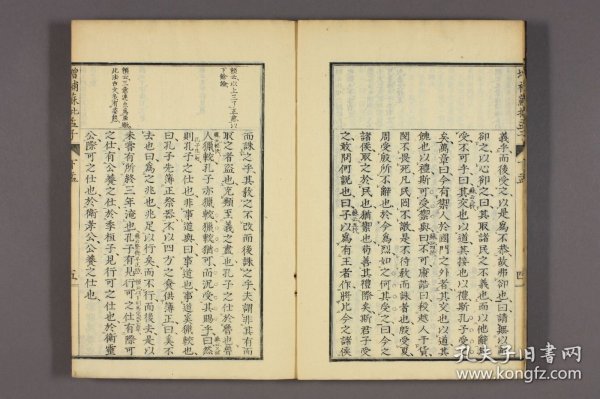 義乎而後受之以是為不恭故弗卻也曰請無以辭
卻之以心卻之曰其取諸民之不義也而以他辭無
受不可乎曰其交也以道其接也以禮斯孔子受之
矣萬章曰今有禦人於國門之外者其交也以道其
餽也以禮斯可受禦與曰不可康誥曰殺越人于貨
閔不畏死凡民罔不譈是不待教而誅者也殷受夏
周受殷所不辭也於今為烈如之何其受之曰今之
諸侯取之於民也猶禦也苟善其禮際矣斯君子受
之敢問何說也曰子以為有王者作將比今之諸侯
四
而誅之乎其教之不改而後誅之乎夫謂非其有而
取之者盜也充類至義之盡也孔子之仕於魯也魯
人獵較孔子亦獵較獵較猶可而況受其賜乎曰然
則孔子之仕也非事道與曰事道也事道奚獵較也
曰孔子先簿正祭器不以四方之食供簿正曰奚不
去也曰為之兆也兆足以行矣而不行而後去是以
未嘗有所終三年淹也孔子有見行可之仕有際可
之仕有公養之仕於季桓子見行可之仕也於衛靈
公際可之仕也於衛孝公公養之仕也
增補蘇批孟子
下孟
五
孔夫子旧书网
www.kongfz.com